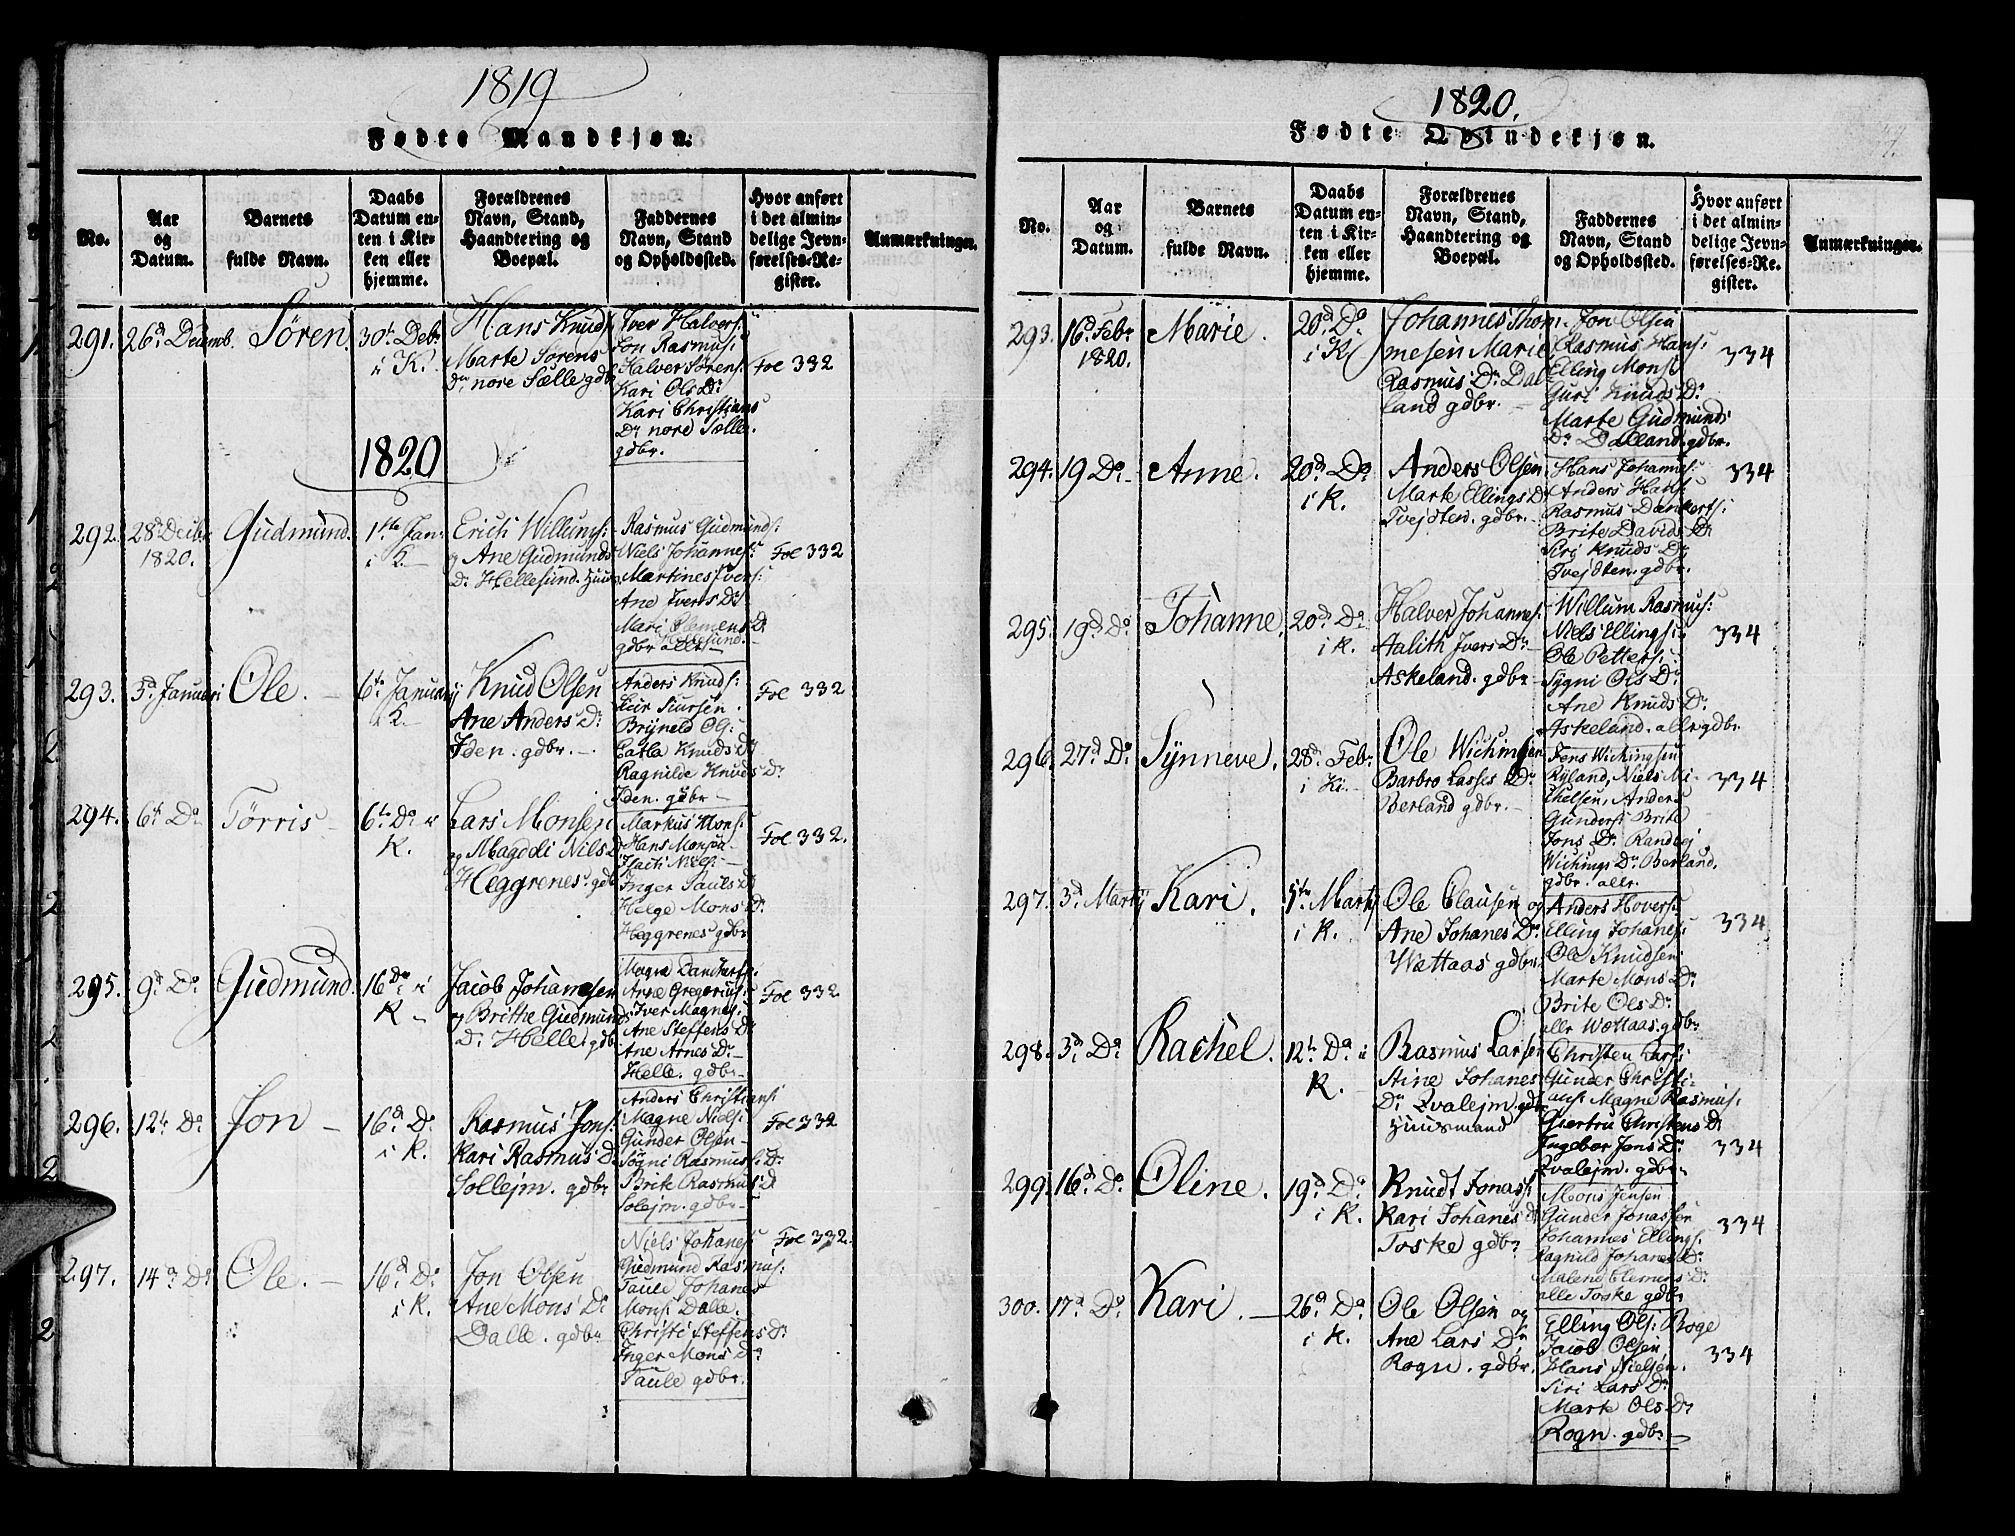 1819
Fødte Mandkjøn.
No.
Aar
og
Datum.
Barnets
fulde Navn.
Daabs
Datum en-
ten i Kir-
ken eller
hjemme.
Forældrenes
Navn, Stand,
Haandtering og
Boepæl.
Faddernes
Navn, Stand
og Opholdssted.
Hvor anført
i det almin-
delige Jevn-
førelses-Re-
gister.
Anmærkninger.
291. 26d Decemb. Søren. 30te Debr.
i K.
Hans Knuds:
Marte Sørens
Dr nore Sælle gdbr
Iver Halvers:
Jon Rasmus:
Halver Sørens:
Kari Ols Dr
Kari Christians
Dr nore Sælle.
gdbr.
Foe 332
1820
292. 28d Decbr
1820.
Gudmund. 1ste Jan:
i K.
Erich Willums:
og Ane Gudmunds
Dr Hellesund. Huus
Rasmus Gudmunds:
Niels Johannes:
Martines Ivers:
Ane Ivers Dr
Mari Clemens Dr
Hellesund.
gdbr alle
Foe 332
293. 5d Januari Ole. 6te Januarij
i K.
Knud Olsen
Ane Anders Dr
Iden. gdbr.
Anders Knuds:
Siursen.
Bryneld Ols:
Catla Knuds Dr
Ragnilde Knuds Dr
Iden. gdbr
Foe 332
294. 6te Do Tørris 6te Do i
K.
Lars Monsen
og Magdeli Nils Dr
Heggrenes. gdbr
Markus Mons:
Hans Monsen
Inger Pauls Dr
Helge Mons Dr
Heggrenes gdbr
Foe 332.
295. 9d Do Gudmund. 16de i
K
Jacob Johannesen
og Brithe Gudmunds
Dr Helle. gdbr
Mogne Danckerts:
Arne Gregorius:
Iver Magnes:
Ane Steffens Dr
Ane Arnes Dr
Helle. gdbr
Foe 332
296. 12te Do Jon 16d Do
i K.
Rasmus Jons:
Kari Rasmus Dr
Sollejm. gdbr
Anders Christians:
Magne Niels:
Gunder Olsen
Søgni Rasmus: Dr
Brite Rasmus Dr
Solejm. gdbr
Foe 332
297. 14d Do Ole. 16d Do
i K.
Jon Olsen
Ane Mons Dr
Dalle. gdbr
Niels Johanes:
Gudmund Rasmus:
Taule Johanes
Mons: Dalle.
Christi Steffens Dr
Inger Mons Dr
Taule gdbr.
Foe 332.
1820.
Fødte Qvindekjøn.
No.
Aar
og
Datum.
Barnets
fulde Navn.
Daabs
Datum en-
ten i Kir-
ken eller
hjemme.
Forældrenes
Navn, Stand,
Haandtering og
Boepæl.
Faddernes
Navn, Stand
og Opholdssted.
Hvor anført
i det almin-
delige Jevn-
førelses-Re-
gister.
Anmærkninger.
293. 16d Febr
1820.
Marie. 20d Do
i K
Johannes Thom-
mesen Marie
Rasmus Dr Dal-
land gdbr.
Jon Olsen
Rasmus Hans:
Elling Mons:
Guri Knuds Dr
Marte Gudmunds
Dr Dalland. gdbr.
334
294. 19 Do Anne. 20d Do
i K.
Anders Olsen
Marte Ellings Dr
Tvejten. gdbr.
Hans Johannes:
Anders Hans:
Rasmus Dankerts:
Brite Davids Dr
Siri Knuds Dr
Tvejten. gdbr.
334
295. 19d Do Johanne. 20d Do
i K.
Halver Johannes:
Aalith Ivers Dr
Askeland. gdbr
Willum Rasmus:
Niels Ellings:
Ole Petters:
Sygni Ols Dr
Ane Knuds Dr
Askeland. alle gdbr.
334
296. 27d Do Synneve. 28d Febr
i K.
Ole Wichingsen
Barbro Lasses Dr
Berland gdbr.
Jens Wichingsen
Ryland, Niels Mi-
chelsen, Anders
Gunders: Brite
Jons Dr Randej
Wichings Dr Berland.
gdbr. alle.
334
297. 3d Martij Kari. 5te Martij
i K.
Ole Clausen og
Ane Johanes Dr
Wattaas gdbr
Anders Hovers:
Elling Johanes:
Ole Knudsen
Marte Mons Dr
Brite Ols Dr
alle Wattaas. gdbr
334
298. 3d Do Rachel. 12te Do i
K.
Rasmus Larsen
Stine Johanes
Dr Qvalejm. gdbr
Huusmand
Christen Lars:
Gunder Christi-
ans: Magne Rasmus:
Giertru Christens Dr
Ingebor Jens Dr
Qvalejm. gdbr
334
299. 16d Do Oline. 19d Do
i K.
Knudt Jonas:
Kari Johanes Dr
Toske gdbr
Mons Jensen
Gunder Jonassen
Johannes Ellings:
Ragnild Johanes Dr
Malend Clemens Dr
alle Toske gdbr
334
300. 17d Do Kari. 26d Do
i K.
Ole Olsen og
Ane Lars Dr
Rogn. gdbr.
Elling Ols: Roge
Jacob Olsen
Hans Nielsen.
Siri Lars Dr
Marte Ols Dr
Rogn. gdbr.
334